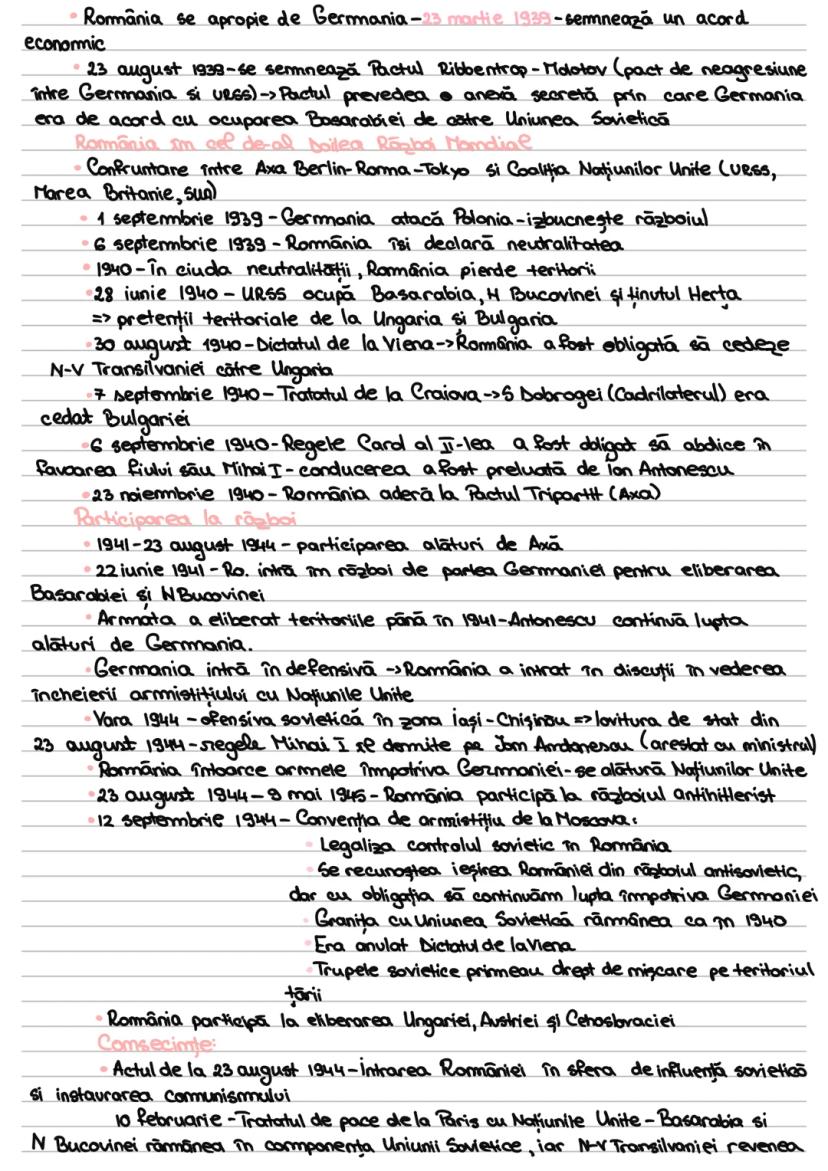 • România se apropie de Germania-23 martie 1939-semnează un acord
economic
• 23 august 1939-se semnează Pactul Ribbentrop-Molotov (pact de neagresiune
între Germania si URSS)->Pactul prevedea o anexă secretă prin care Germania
era de acord cu ocuparea Basarabiei de către Uniunea Sovietică
România în cel de-al Doilea Război Mondial
• Confruntare între Axa Berlin-Roma-Tokyo si Coaliția Națiunilor Unite (URSS,
Marea Britanie, SUA)
• 1 septembrie 1939-Germania atacă Polonia-izbucnește războiul
• 6 septembrie 1939-România își declară neutralitatea
• 1940-În ciuda neutralității, România pierde teritorii
• 28 iunie 1940 - URSS ocupă Basarabia, N Bucovinei și ținutul Herța
=> pretenții teritoriale de la Ungaria și Bulgaria
• 30 august 1940-Dictatul de la Viena->România a fost obligată să cedeze
N-V Transilvaniei către Ungaria
• 7 septembrie 1940-Tratatul de la Craiova->S Dobrogei (Cadrilaterul) era
cedat Bulgariei
• 6 septembrie 1940-Regele Carol al II-lea a fost obligat să abdice în
favoarea fiului său Mihai I-conducerea a fost preluată de Ion Antonescu
• 23 noiembrie 1940-România aderă la Pactul Tripartit (Axa)
Participarea la război
• 1941-23 august 1944-participarea alături de Axă
• 22 iunie 1941-Ro. intră în război de partea Germaniei pentru eliberarea
Basarabiei și N Bucovinei
• Armata a eliberat teritoriile până în 1941-Antonescu continuă lupta
alături de Germania.
• Germania intră în defensivă ->România a intrat în discuții în vederea
încheierii armistițiului cu Națiunile Unite
• Vara 1944 -ofensiva sovietică în zona Iași-Chișinău => lovitura de stat din
23 august 1944-regele Mihai I îl demite pe Ion Antonescu (arestat cu miniștrii)
• România întoarce armele împotriva Germaniei-se alătură Națiunilor Unite
• 23 august 1944-9 mai 1945-România participă la războiul antihitlerist
• 12 septembrie 1944-Convenția de armistițiu de la Moscova:
• Legaliza controlul sovietic în România
• Se recunoștea ieșirea României din războiul antisovietic,
dar cu obligația să continuăm lupta împotriva Germaniei
• Granița cu Uniunea Sovietică rămânea ca în 1940
• Era anulat Dictatul de la Viena
• Trupele sovietice primeau drept de mișcare pe teritoriul
țării
• România participă la eliberarea Ungariei, Austriei și Cehoslovaciei
Consecințe:
• Actul de la 23 august 1944-Intrarea României în sfera de influență sovietică
si instaurarea comunismului
10 februarie-Tratatul de pace de la Paris cu Națiunile Unite-Basarabia si
N Bucovinei rămânea în componența Uniunii Sovietice, iar N-V Transilvaniei revenea